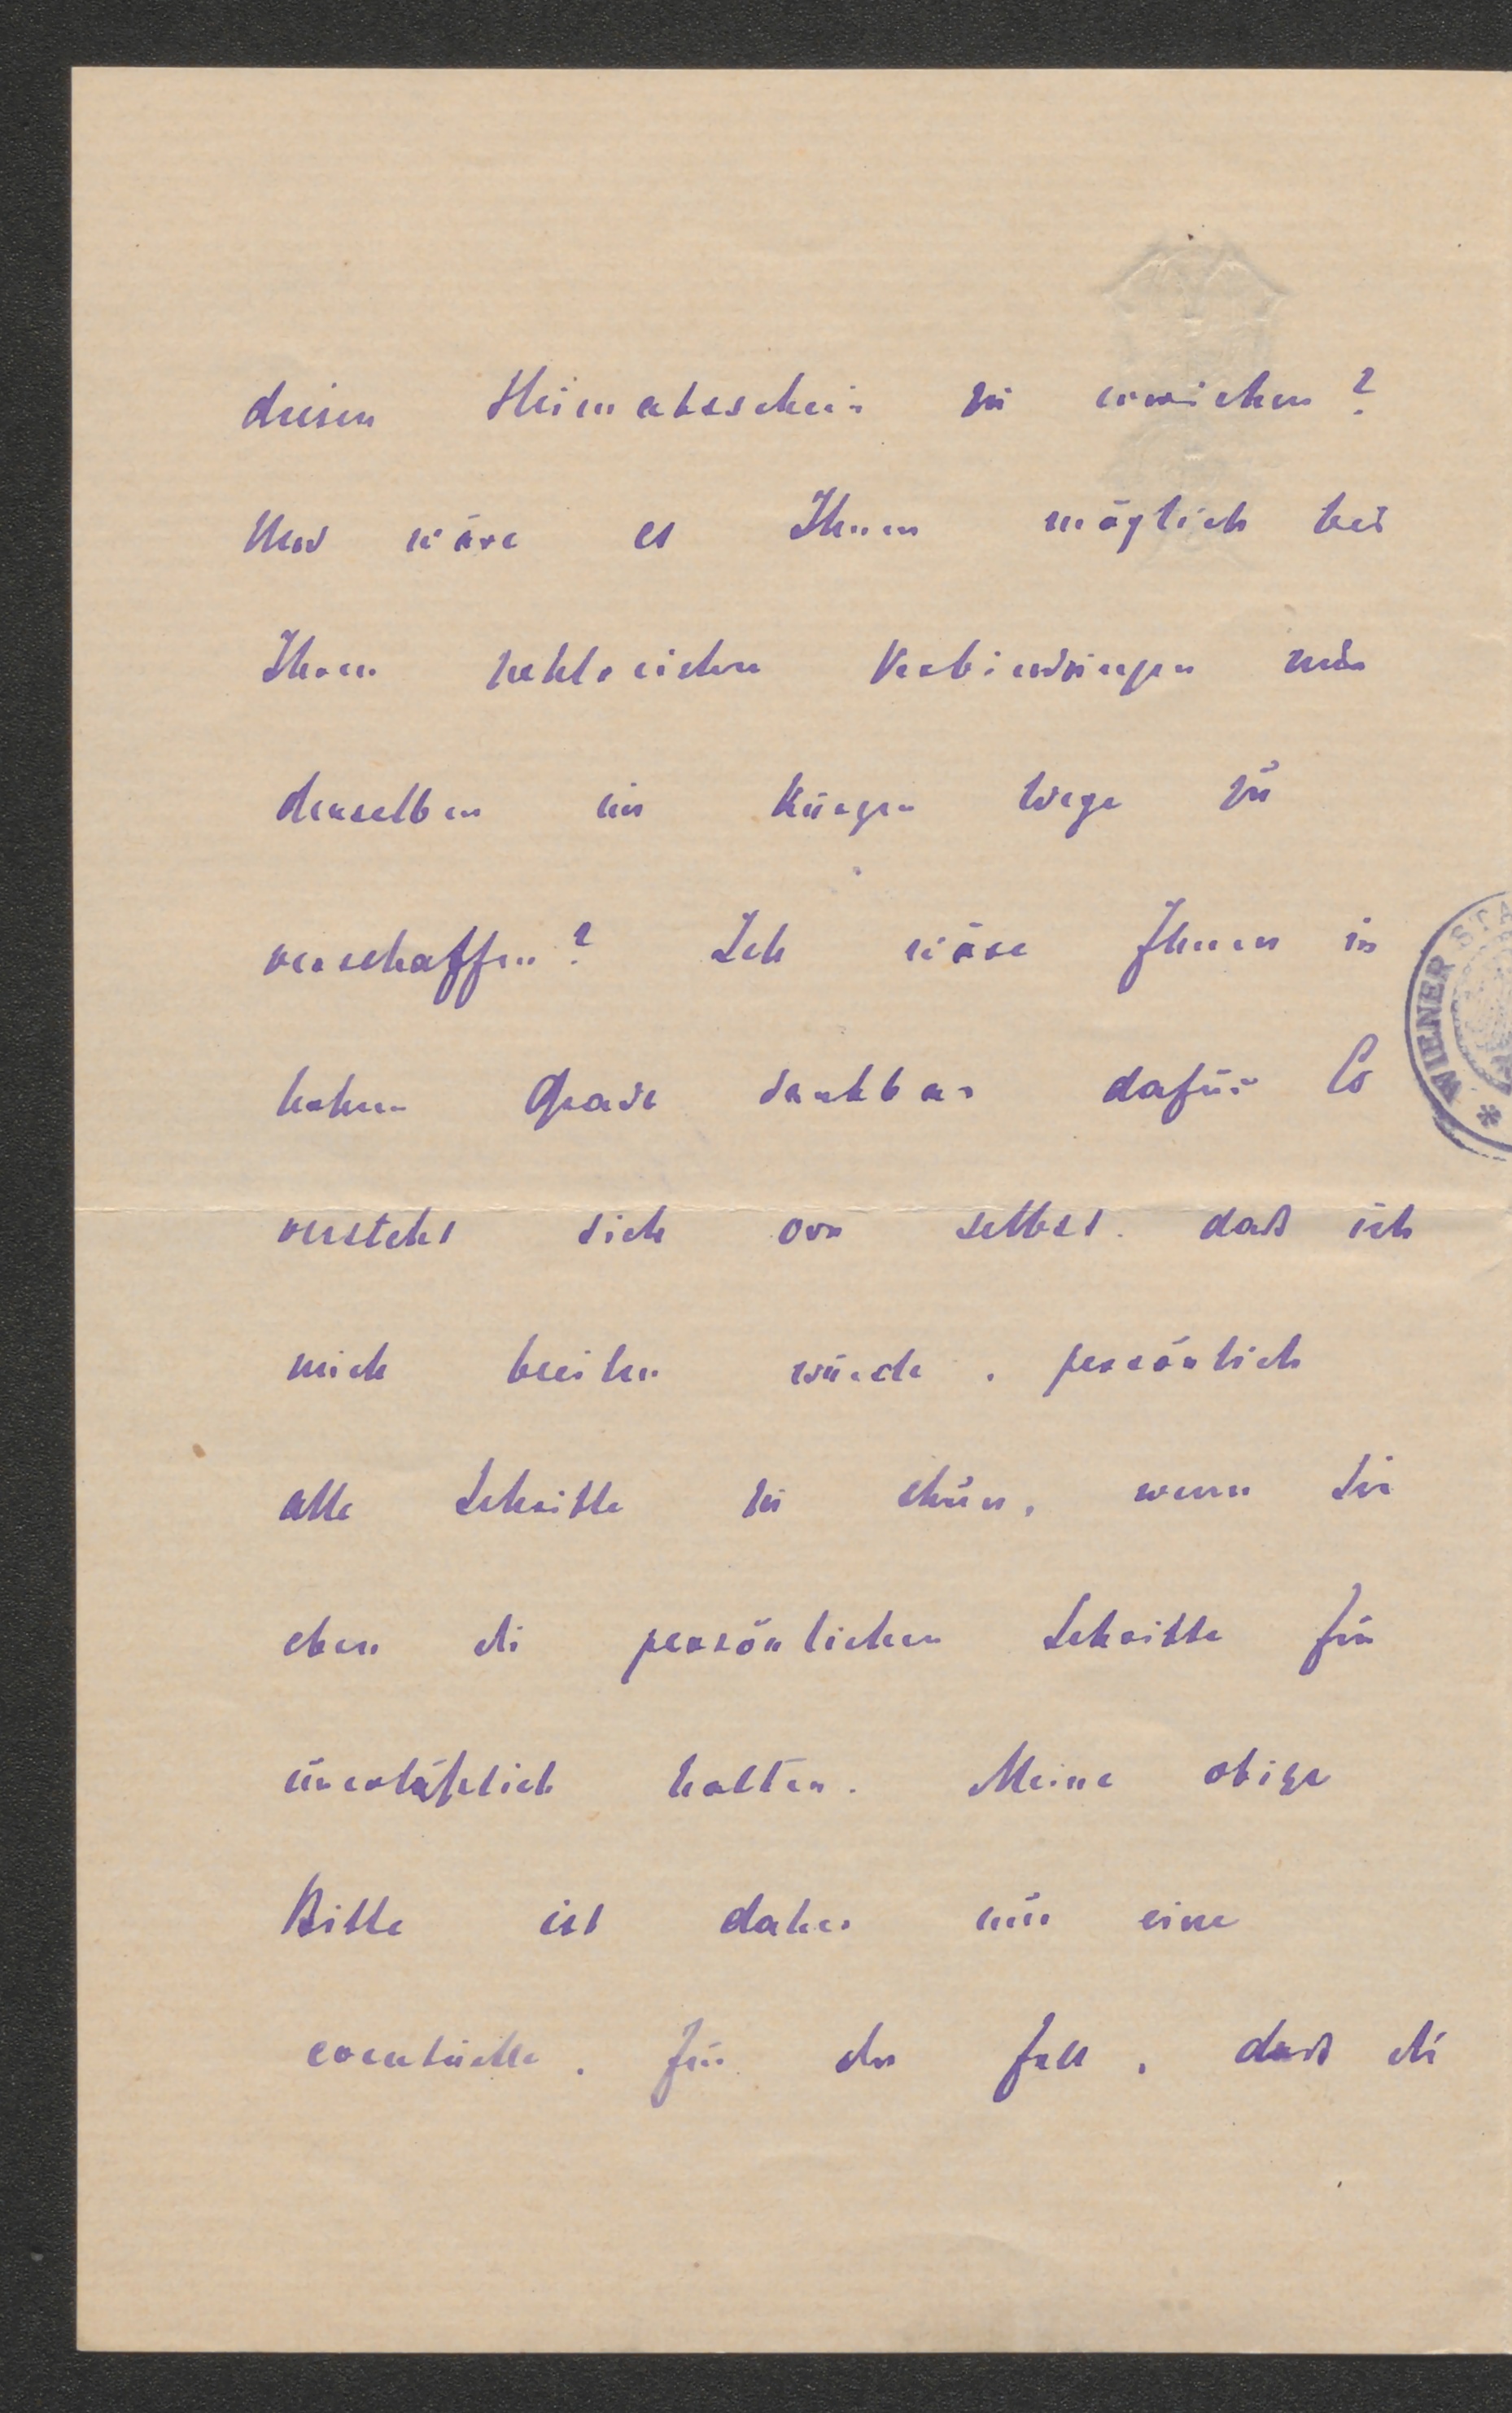 diesen Heimatsschein zu erreichen?
Und wäre es Ihnen möglich bei
Ihren zahlreichen Verbindungen mir
denselben im kurzen Wege zu
verschaffen? Ich wäre Ihnen in
hohem Grade dankbar dafür Es
versteht sich von selbst, daß ich
mich beeilen würde, persönlich
alle Schritte zu thun, wenn Sie
eben die persönlichen Schritte für
unerläßlich halten. Meine obige
Bitte ist daher nur eine
eventuelle, für den Fall, daß die
WIENER STA